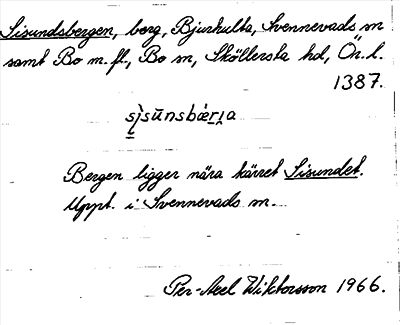 Sisundsbergen, berg, Bjurhulta, Svennevads sn
samt Bo m.fl., Bo sn, Sköllersta hd, Ön. l.
1387.
Bergen ligger nära kärret Sisundet.
Uppt. i Svennevads sn.
Per-Axel Wiktorsson 1966.